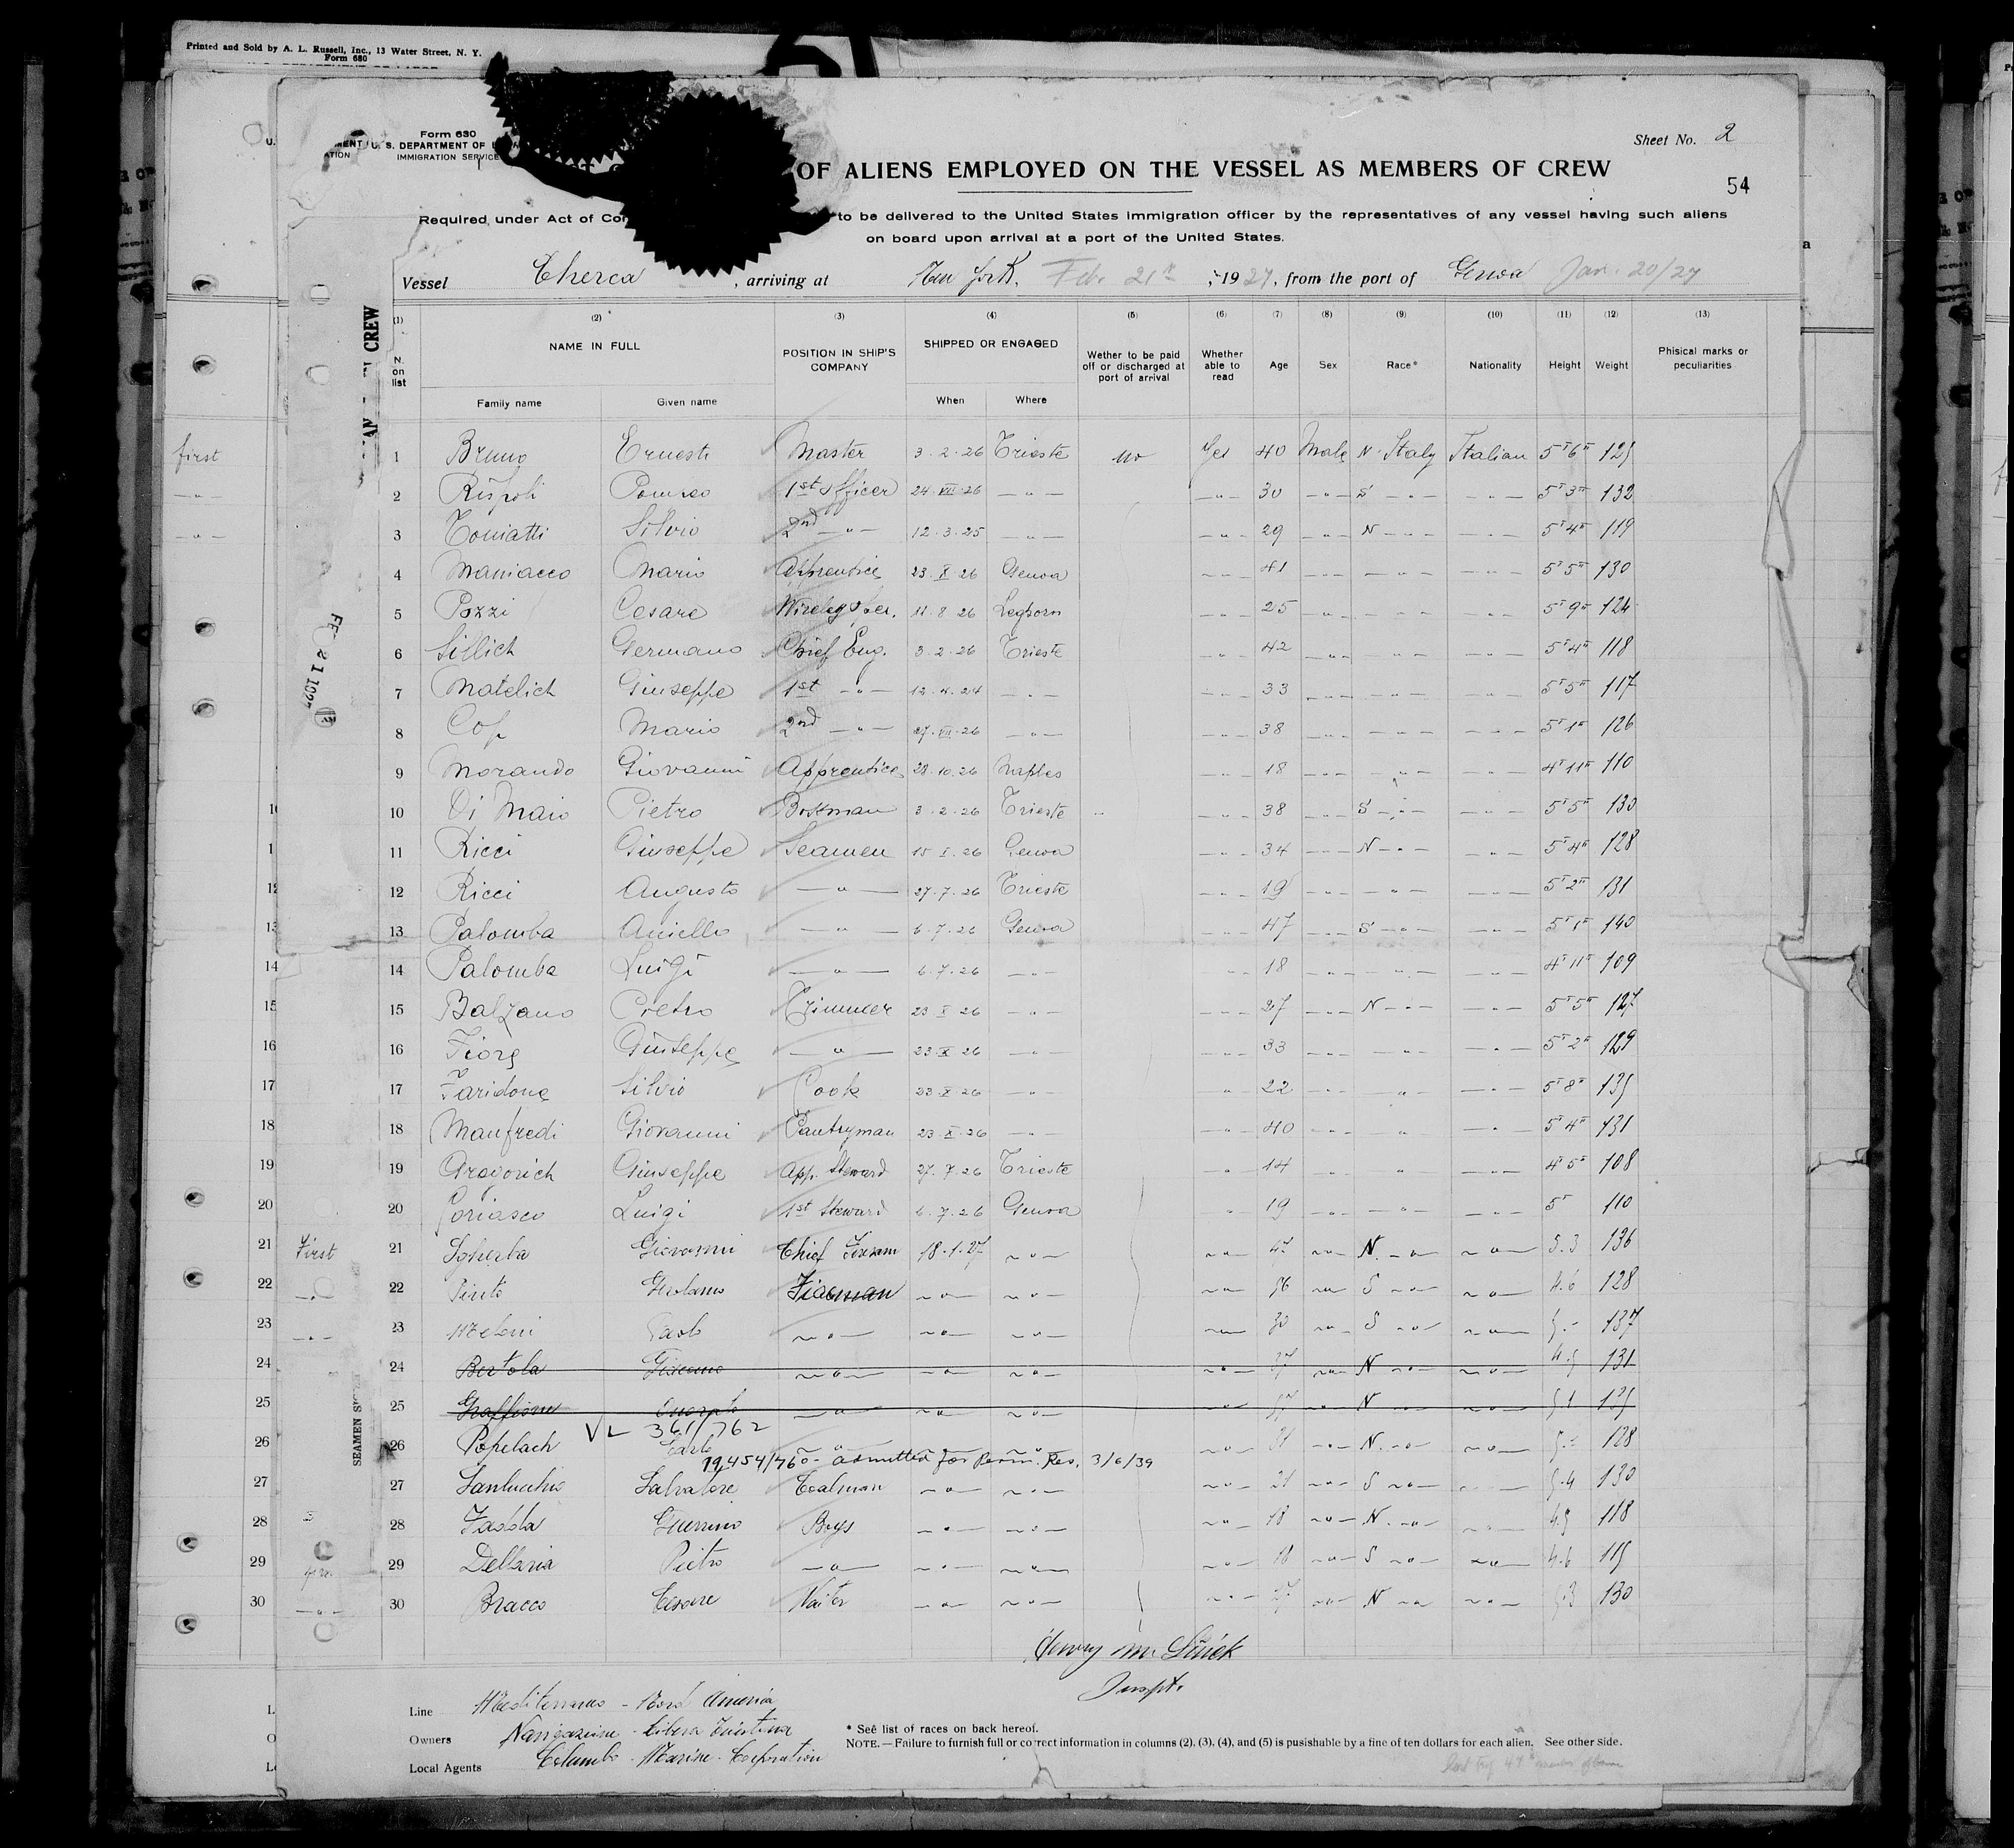 Printed and Sold by A. L. Russell, Inc., 13 Water Street, N. Y.
Form 680
Form 630
U. S. DEPARTMENT OF
IMMIGRATION SERVICE
Sheet No. 2
OF ALIENS EMPLOYED ON THE VESSEL AS MEMBERS OF CREW
54
Required under Act of to be delivered to the United States immigration officer by the representatives of any vessel having such aliens
on board upon arrival at a port of the United States.
Vessel Cherca, arriving at New York, Feb. 21, 1927, from the port of Genoa Jan. 20/27
(1) (2) (3) (4) (5) (6) (7) (8) (9) (10) (11) (12) (13)
N. on list NAME IN FULL POSITION IN SHIP'S COMPANY SHIPPED OR ENGAGED Wether to be paid off or discharged at port of arrival Whether able to read Age Sex Race* Nationality Height Weight Phisical marks or peculiarities
Family name Given name When Where
first 1 Bruno Ernesto Master 3.2.26 Trieste no Yes 40 Male N. Italy Italian 5'6" 125
-"- 2 Rispoli Pompeo 1st Officer 24.VII.26 -"- -"- 30 -"- S -"- -"- 5'3" 132
-"- 3 Toniatti Silvio 2nd -"- 12.3.25 -"- -"- 29 -"- N -"- -"- 5'4" 119
4 Maniacco Mario Apprentice 23.X.26 Genoa -"- 41 -"- -"- -"- 5'5" 130
5 Pozzi Cesare 11.8.26 Leghorn -"- 25 -"- -"- -"- 5'9" 124
6 Sillich Germano Chief Eng. 3.2.26 Trieste -"- 42 -"- -"- -"- 5'4" 118
7 Matelich Giuseppe 1st -"- 12.4.24 -"- -"- 33 -"- -"- -"- 5'5" 117
8 Cop Mario 2nd -"- 27.VII.26 -"- -"- 38 -"- -"- -"- 5'1" 126
9 Morando Giovanni Apprentice 28.10.26 Naples -"- 18 -"- -"- -"- 4'11" 110
10 Di Maio Pietro Bosman 3.2.26 Trieste -"- 38 -"- S -"- -"- 5'5" 130
11 Ricci Giuseppe Seamen 15.X.26 Genoa -"- 34 -"- N -"- -"- 5'4" 128
12 Ricci Augusto -"- 27.7.26 Trieste -"- 19 -"- -"- -"- 5'2" 131
13 Palomba Aniello -"- 6.7.26 Genoa -"- 47 -"- S -"- -"- 5'1" 140
14 Palomba Luigi -"- 6.7.26 -"- -"- 18 -"- -"- -"- 4'11" 109
15 Balzano Pietro Trimmer 23.X.26 -"- 27 -"- N -"- -"- 5'5" 127
16 Fiore Giuseppe -"- 23.X.26 -"- -"- 33 -"- -"- -"- 5'2" 129
17 Faridone Silvio Cook 23.X.26 -"- -"- 22 -"- -"- -"- 5'8" 135
18 Manfredi Giovanni Pantryman 23.X.26 -"- -"- 40 -"- -"- -"- 5'4" 131
19 Giuseppe App. Steward 27.7.26 Trieste -"- 14 -"- -"- -"- 4'5" 108
20 Luigi 1st Steward 6.7.26 Genoa -"- 19 -"- -"- -"- 5' 110
First 21 Sgherba Giovanni Chief 18.1.27 -"- -"- 47 -"- N. -"- -"- 5.3 136
-"- 22 Pinto Girolamo Fireman -"- -"- -"- 56 -"- S -"- -"- 4.6 128
-"- 23 Meloni Paolo -"- -"- -"- -"- 30 -"- S -"- -"- 5.- 137
24 Bertola Giacomo -"- -"- -"- -"- 37 -"- N -"- -"- 4.5 131
25 Graffione -"- -"- -"- -"- 37 -"- N -"- -"- 5.1 135
VL 361/762
26 Popelach Carlo -"- -"- -"- -"- 31 -"- N. -"- -"- 5.- 128
79454/760 - admitted for Perm. Res. 3/6/39
27 Santucchio Salvatore Coalman -"- -"- -"- 21 -"- S -"- 5.4 130
28 Fadda Guerrino Boys -"- -"- -"- 18 -"- N. -"- -"- 4.5 118
29 Dellaria Pietro -"- -"- -"- -"- 18 -"- S -"- -"- 4.6 115
-"- 30 Bracco Cesare Waiter -"- -"- -"- 27 -"- N -"- -"- 5.3 130
Henry
Inspt.
Line Mediterraneo - Nord America
Owners Navigazione Libera Triestina
Local Agents Columbo Marine Corporation
* See list of races on back hereof.
NOTE.—Failure to furnish full or correct information in columns (2), (3), (4), and (5) is pusishable by a fine of ten dollars for each alien. See other side.